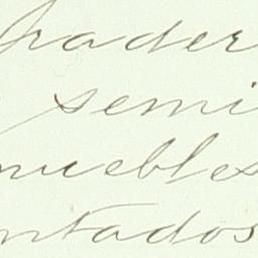 rader
semi
muebles
ntados